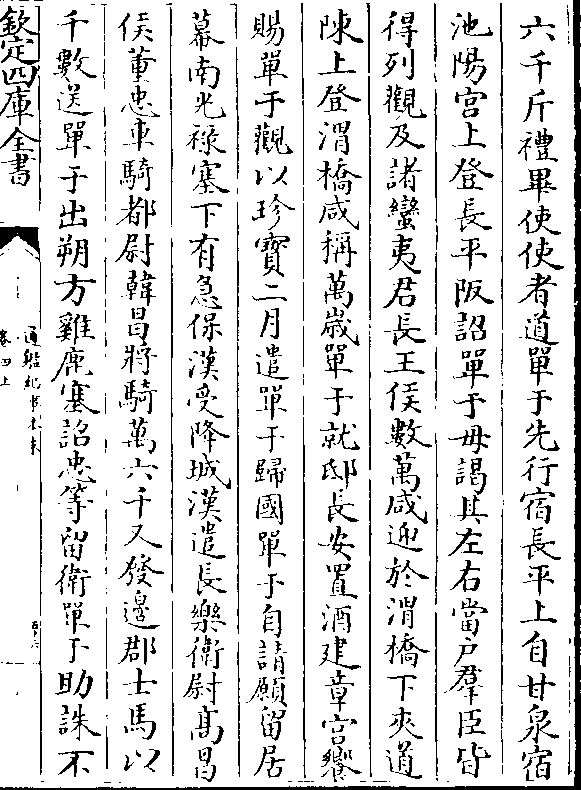 六千斤禮畢使使者道單于先行宿長平上自甘泉宿
池陽宫上登長平阪詔單于毋謁其左右當户羣臣皆
得列觀及諸蠻夷君長王侯數萬咸迎於渭橋下夾道
陳上登渭橋咸稱萬歲單于就邸長安置酒建章宫饗
賜單于觀以珍寳二月遣單于歸國單于自請願留居
幕南光祿塞下有急保漢受降城漢遣長樂衛尉髙昌
侯董忠車騎都尉韓昌將騎萬六千又發邊郡士馬以
千數送單于出朔方雞鹿塞詔忠等留衛單于助誅不
欽定四庫全書
通鑑紀事本末
卷四上